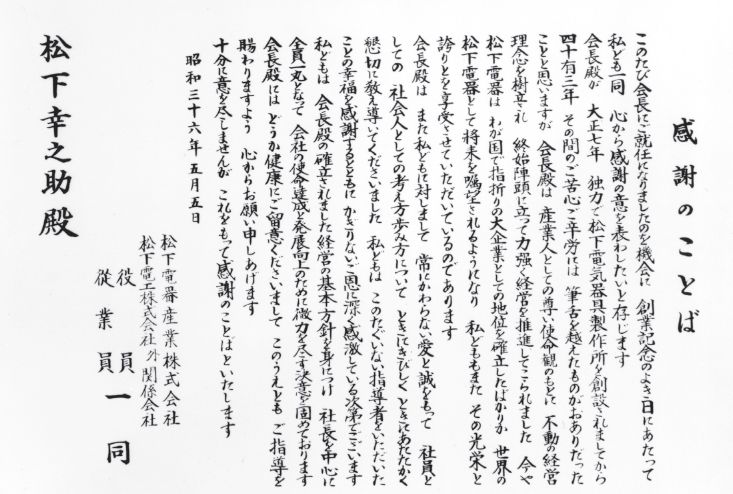 感謝のことば
このたび会長にご就任になりましたのを機会に　創業記念のよき日にあたって
私ども一同　心から感謝の意を表わしたいと存じます
会長殿が　大正七年　独力で松下電気器具製作所を創設されましてから
四十有三年　その間のご苦心ご辛労には　筆舌を越えたものがおありだった
ことと思いますが　会長殿は　産業人としての尊い使命観のもとに　不動の経営
理念を樹立され　終始陣頭に立って力強く経営を推進してこられました　今や
松下電器は　わが国で指折りの大企業としての地位を確立したばかりか　世界の
松下電器として将来を嘱望されるようになり　私どももまた　その光栄と
誇りとを享受させていただいているのであります
会長殿は　また私どもに対しまして　常にかわらない愛と誠をもって　社員と
しての　社会人としての考え方歩み方について　ときにきびしく　ときにあたたかく
懇切に教え導いてくださいました　私どもは　このたぐいない指導者をいただいた
ことの幸福を感謝するとともに　かぎりないご恩に深く感激している次第でございます
私どもは　会長殿の確立されました経営の基本方針を身につけ　社長を中心に
全員一丸となって　会社の使命達成と発展向上のために微力を尽す決意を固めております
会長殿には　どうか健康にご留意くださいまして　このうえとも　ご指導を
賜わりますよう　心からお願い申しあげます
十分に意を尽しませんが　これをもって感謝のことばといたします
昭和三十六年五月五日
松下電器産業株式会社
松下電工株式会社外関係会社
役員
従業員一同
松下幸之助殿